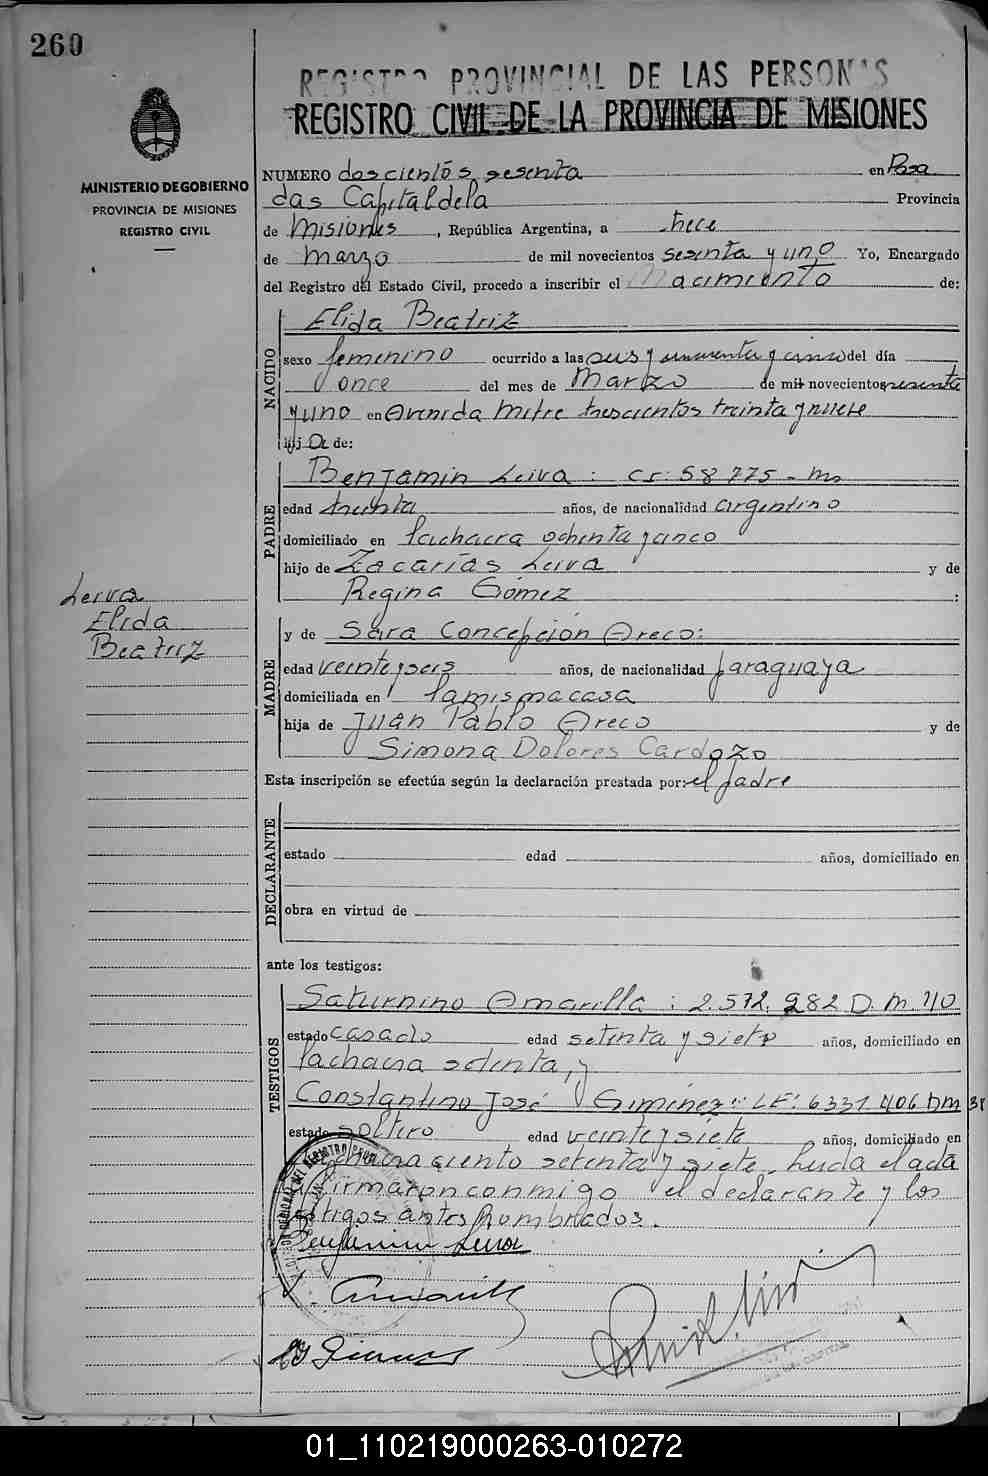 260
REGISTRO PROVINCIAL DE LAS PERSONAS
REGISTRO CIVIL DE LA PROVINCIA DE MISIONES
MINISTERIO DE GOBIERNO
PROVINCIA DE MISIONES
REGISTRO CIVIL
NUMERO doscientos sesenta en Posa
das Capital de la Provincia
de Misiones, República Argentina, a trece
de marzo de mil novecientos sesenta y uno Yo, Encargado
del Registro del Estado Civil, procedo a inscribir el Nacimiento de:
NACIDO
Elida Beatriz
sexo femenino ocurrido a las seis y cincuenta y cinco del día
once del mes de Marzo de mil novecientos sesenta
y uno en Avenida Mitre trescientos treinta y nueve
hija de:
PADRE
Benjamin Leiva: CI: 58775 - Ms
edad treinta años, de nacionalidad argentino
domiciliado en la chacra ochenta y cinco
hijo de Zacarías Leiva y de
Regina Gómez :
Leiva
Elida
Beatriz
MADRE
y de Sara Concepción Areco:
edad veinte y seis años, de nacionalidad paraguaya
domiciliada en la misma casa
hija de Juan Pablo Areco y de
Simona Dolores Cardozo
Esta inscripción se efectúa según la declaración prestada por: el padre
DECLARANTE
estado edad años, domiciliado en
obra en virtud de
ante los testigos:
TESTIGOS
Saturnino Amarilla: 2.532.982 D.M. 40
estado casado edad setenta y siete años, domiciliado en
la chacra setenta, y
Constantino José Giminez: LE: 6331406 DM 38
estado soltero edad veinte y siete años, domiciliado en
chacra ciento setenta y siete. Leida el acta
firmaron conmigo el declarante y los
testigos antes nombrados.
Benjamin Leiva
Amarilla
01_110219000263-010272